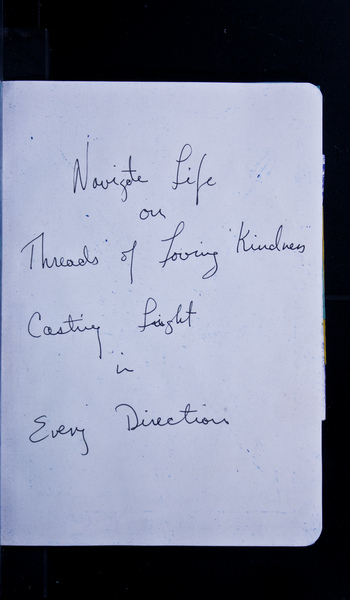 Navigate Life
on
Threads of Loving Kindness
Casting Light
in
Every Direction